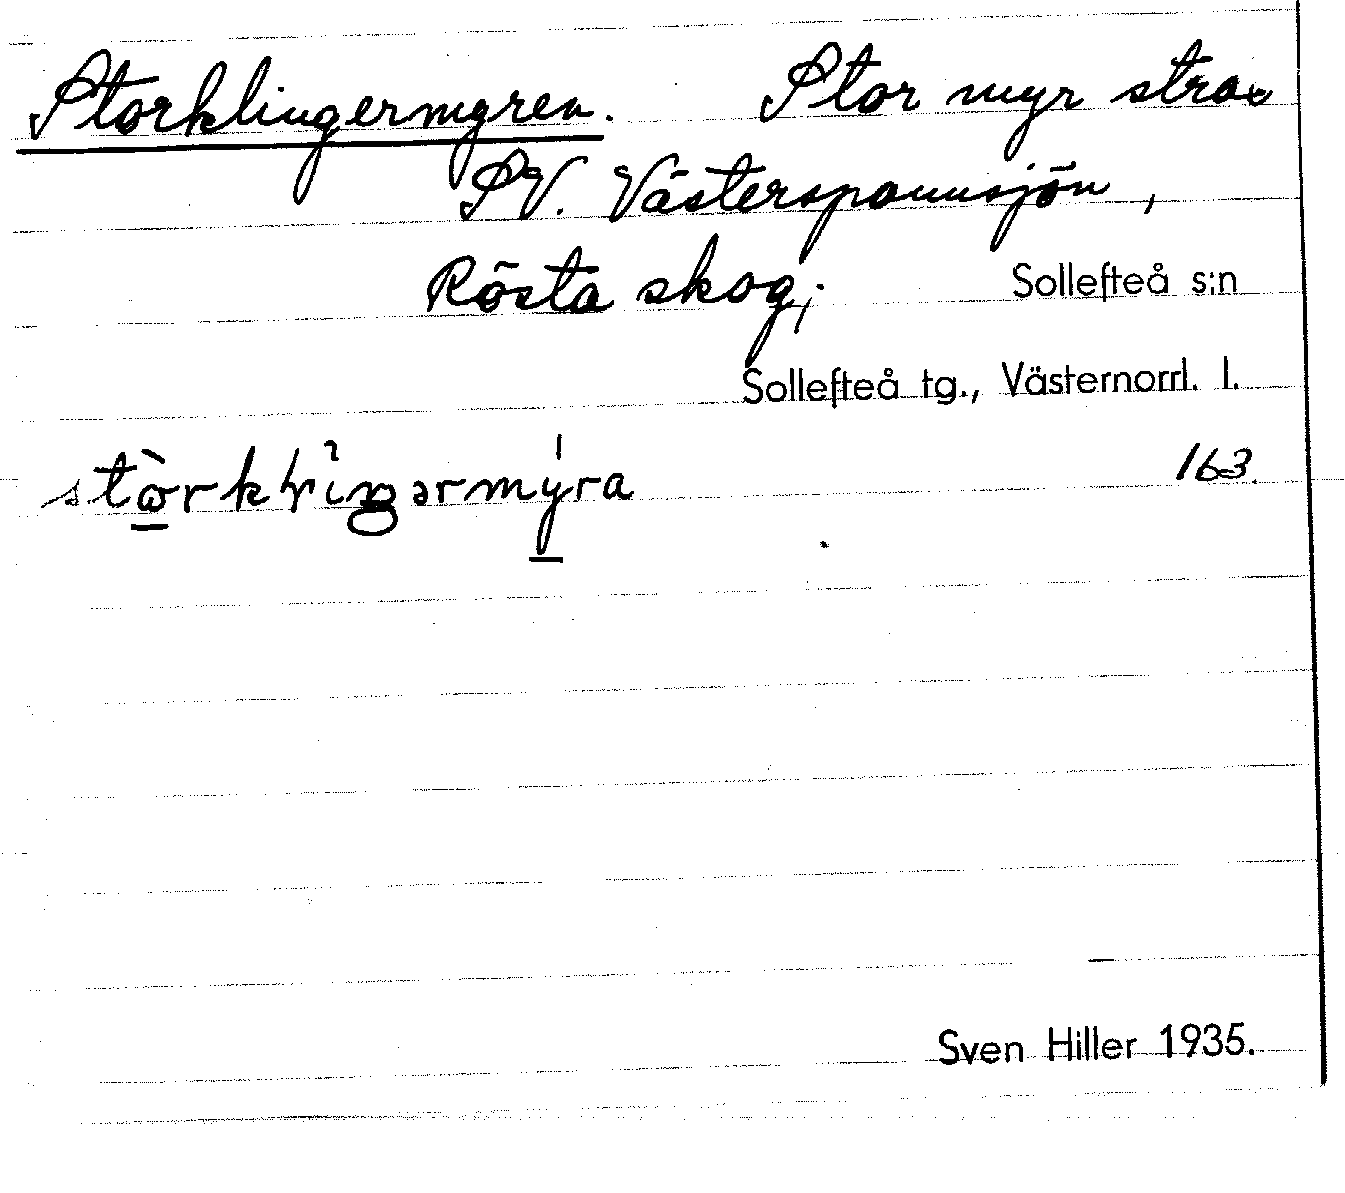 Storklingermyren. Stor myr strax
SV. Västerspannsjön,
Rösta skog; Sollefteå s:n
Sollefteå tg., Västernorrl. l.
163.
Sven Hiller 1935.